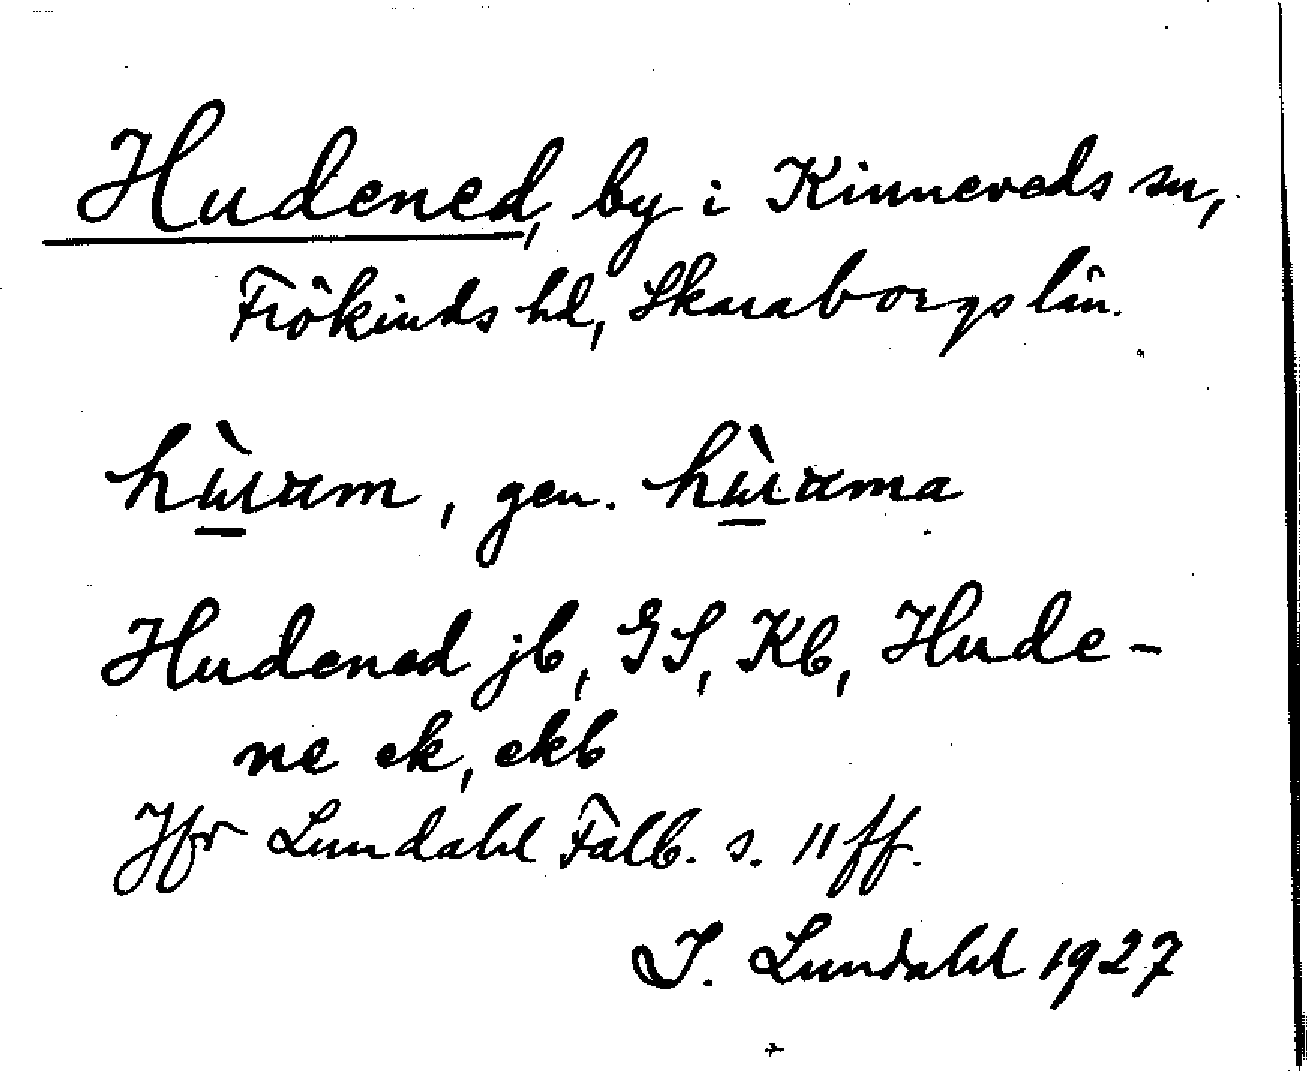 Hudened, by i Kinneveds sn,
Frökinds hd, Skaraborgs län.
, gen.
Hudened jb, GS, Kb, Hude-
ne ek, ekb
Jfr Lundahl Falb. s. 11 ff.
I. Lundahl 1927